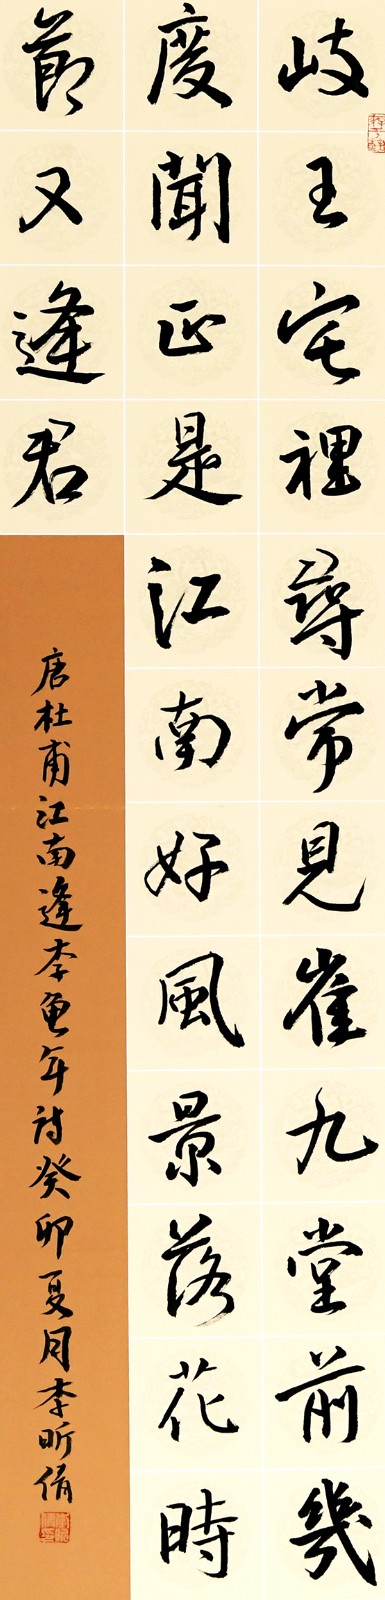 岐王宅裡尋常見崔九堂前幾
度聞正是江南好風景落花時
節又逢君
唐杜甫江南逢李龜年詩癸卯夏月李昕倩